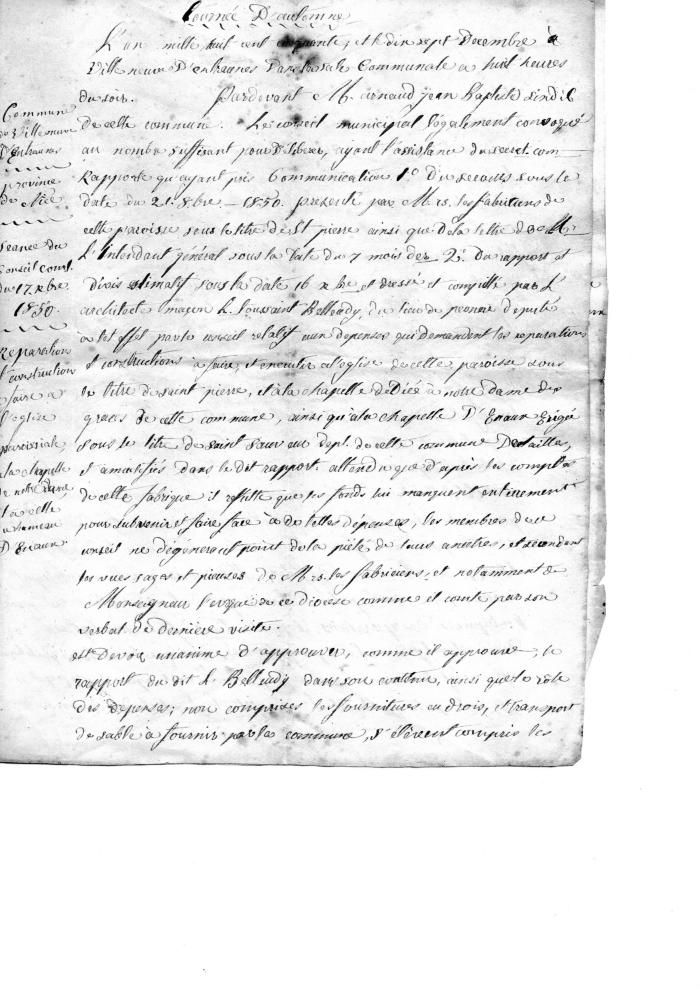 Tournée D'automne
L'an mille huit cent cinquante, et le dix sept Decembre à
Villeneuve D'entraunes Dans la sale Communale a huit heures
du soir. Pardevant M. arnaud jean Baptiste sindic
de cette commune. Le conseil municipal légalement convoqué
au nombre suffisant pour Deliberer, ayant l'assistance du secret. com
Rapporte qu'ayant pris Communication 1.° Du recours sous le
date du 21. 8bre – 1850. presenté par Mrs. les fabriciens de
cette paroisse sous le titre de St pierre ainsi que de la lettre de Mr
L'Intendant général sous la date du 7 mois der. 2.° Du rapport et
Divis estimatif sous la date 16 xbre et dressé et compilé par l'
architecte maçon h. Toussaint Belleudy, du lieu de peonne deputé
à tel effet par le conseil relatif aux depenses qui demandent les reparations
et constructions à faire, et executer a l'eglise de cette paroisse sous
le titre de saint pierre, et à la chapelle dediée à notre dame des
graces de cette commune, ainsi qu'à la chapelle D'Enaux Erigée
sous le titre de saint sauveur dept. de cette commune Detailles,
et dans le dit rapport. attendu que d'après les comptes
de cette fabrique il resulte que les fonds lui manquent entierement
pour subvenir et faire face à de telles dépenses, les membres de ce
conseil ne dégénerent point de la piété de leurs ancetres, et secondent
les vues sages et pieuses de Mrs. les fabriciens, et notamment de
Monseigneur l'eveque de ce diocese comme il conte par son
verbal de dernière visite.
est Devoir unanime d'approuver, comme il approuve, le
rapport du dit h. Belleudy dans son contenu, ainsi que le role
des depenses; non comprises les fournitures en bois, et transport
de sable à fournir par la commune, s'élevent compris les
Commune
de Villeneuve
D'entraunes
province
de Nice
seance du
Conseil com.l
du 17. xbre
1850.
Reparation
et construction
a faire a
l'eglise
parroissiale,
a la chapelle
de notre dame,
et a celle
du hameau
D'Enaux.